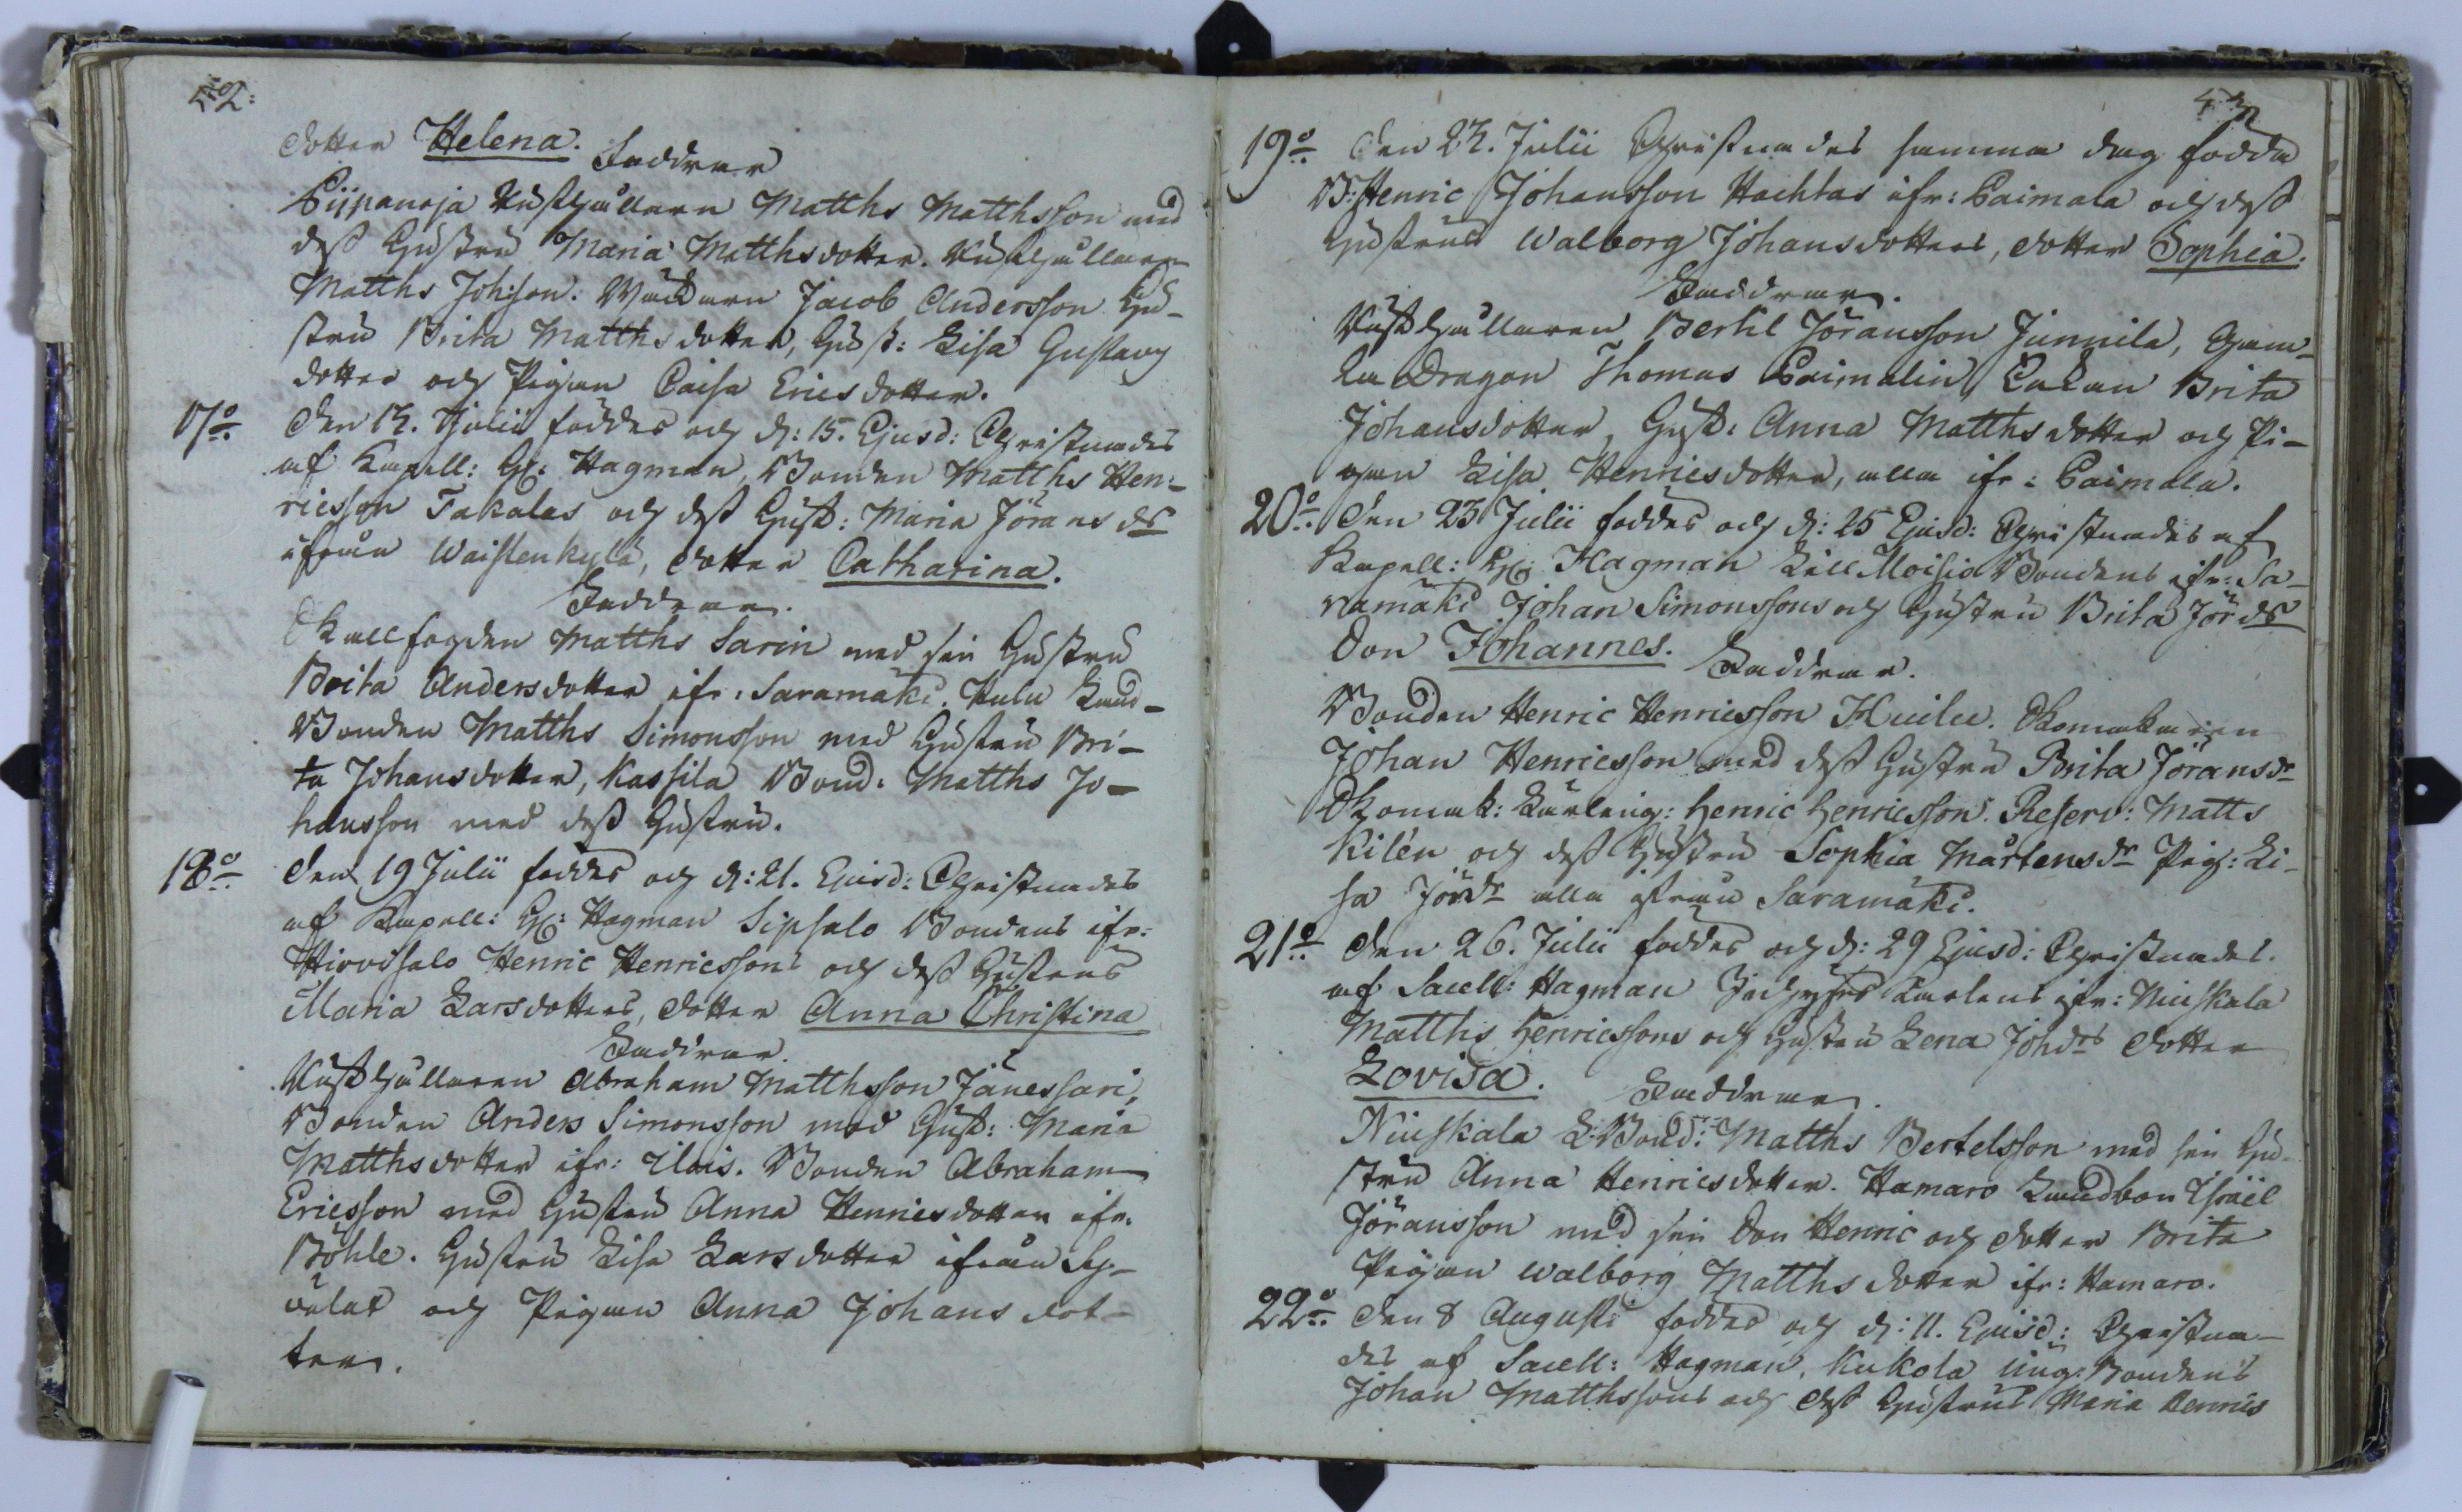 52:
dotter Helena.
Faddrar
Piipanoja Rusthållaren Matths Matthsson med
dess Hustru Maria Matthsdotter. Rusthållaren
Matths Johsson. Jacob Andersson Hu-
stru Brita Matthsdotter, Hust: Lisa Gustavs
dotter och Pigan Caisa Ericsdotter.
17:o Den 13. Julii föddes och d: 15. Ejusd: Christnades
af Kapell: H: Hagman, Bonden Matths Hen-
ricsson Takalas och dess Hust: Maria Jörans dr
ifrån Waistenkylä, dotter Catharina.
Faddrar.
Skallfogden Matths Sarin med sin Hustru
Brita Andersdotter ifr: Saramäki. Land-
Bonden Matths Simonsson med Hustru Bri-
ta Johansdotter, Kassila Bond: Matths Jo-
hansson med dess Hustru.
18:o Den 19 Julii föddes och d: 21. Ejusd: Christnades
af Kapell: H: Hagman Sipsalo Bondens ifr:
Hirvisalo Henric Henricssons och dess Hustrus
Maria Larsdotters, dotter Anna Christina
Faddrar.
Rusthållaren Abraham Matthsson Jänessari,
Bonden Anders Simonsson med Hust: Maria
Matthsdotter ifr: Ilois. Bonden Abraham
Ericsson med Hustru Anna Henricsdotter ifr.
Böhle. Hustru Lisa Larsdotter ifrån Sy-
välax och Pigan Anna Johans dot-
ter.
19:o Den 23. Julii Christnades samma dag födda
B: Henric Johansson Hachtas ifr: Paimala och dess
Hustrus Walborg Johansdotters, dotter Sophia.
Faddrar.
Rusthållaren Bertil Jöransson Junnila, Gam-
la Dragon Thomas Paimalin, Enkan Brita
Johansdotter, Hust: Anna Matthsdotter och Pi-
gan Lisa Henricsdotter, alla ifr: Paimala.
20:o Den 23 Julii föddes och d: 25 Ejusd: Christnades af
Kapell: H: Hagman Lill Moisio Bondens ifr: Sa-
ramäki Johan Simonssons och Hustru Brita Jör dr
Son Johannes.
Faddrar.
Bonden Henric Henricsson Huilu. Skomakaren
Johan Henricsson med dess Hustru Brita Jöransdr
Skomak: Lärling: Henric Henricsson. Reserv: Matts
Kilén och dess Hustru Sophia Mårtensdr Pig: Li-
sa Jördr alla ifrån Saramäki.
21:o Den 26. Julii föddes och d: 29 Ejusd: Christnades.
af Sacell: Hagman Karlens ifr: Niuskala
Matths Henricssons och Hustru Lena Johdrs dotter
Lovisa.
Faddrar.
Niuskala L:Bond: Matths Bertelsson med sin Hu-
stru Anna Henricsdotter. Hamaro Landbon Israël
Jöransson med sin Son Henric och dotter Brita
Pigan Walborg Matthsdotter ifr: Hamaro.
22:o Den 8 Augusti föddes och d: 11. Ejusd: Christna-
des af Sacell: Hagman. Kukola Ung: Bondens
Johan Matthssons och dess Hustrus Maria Henrics